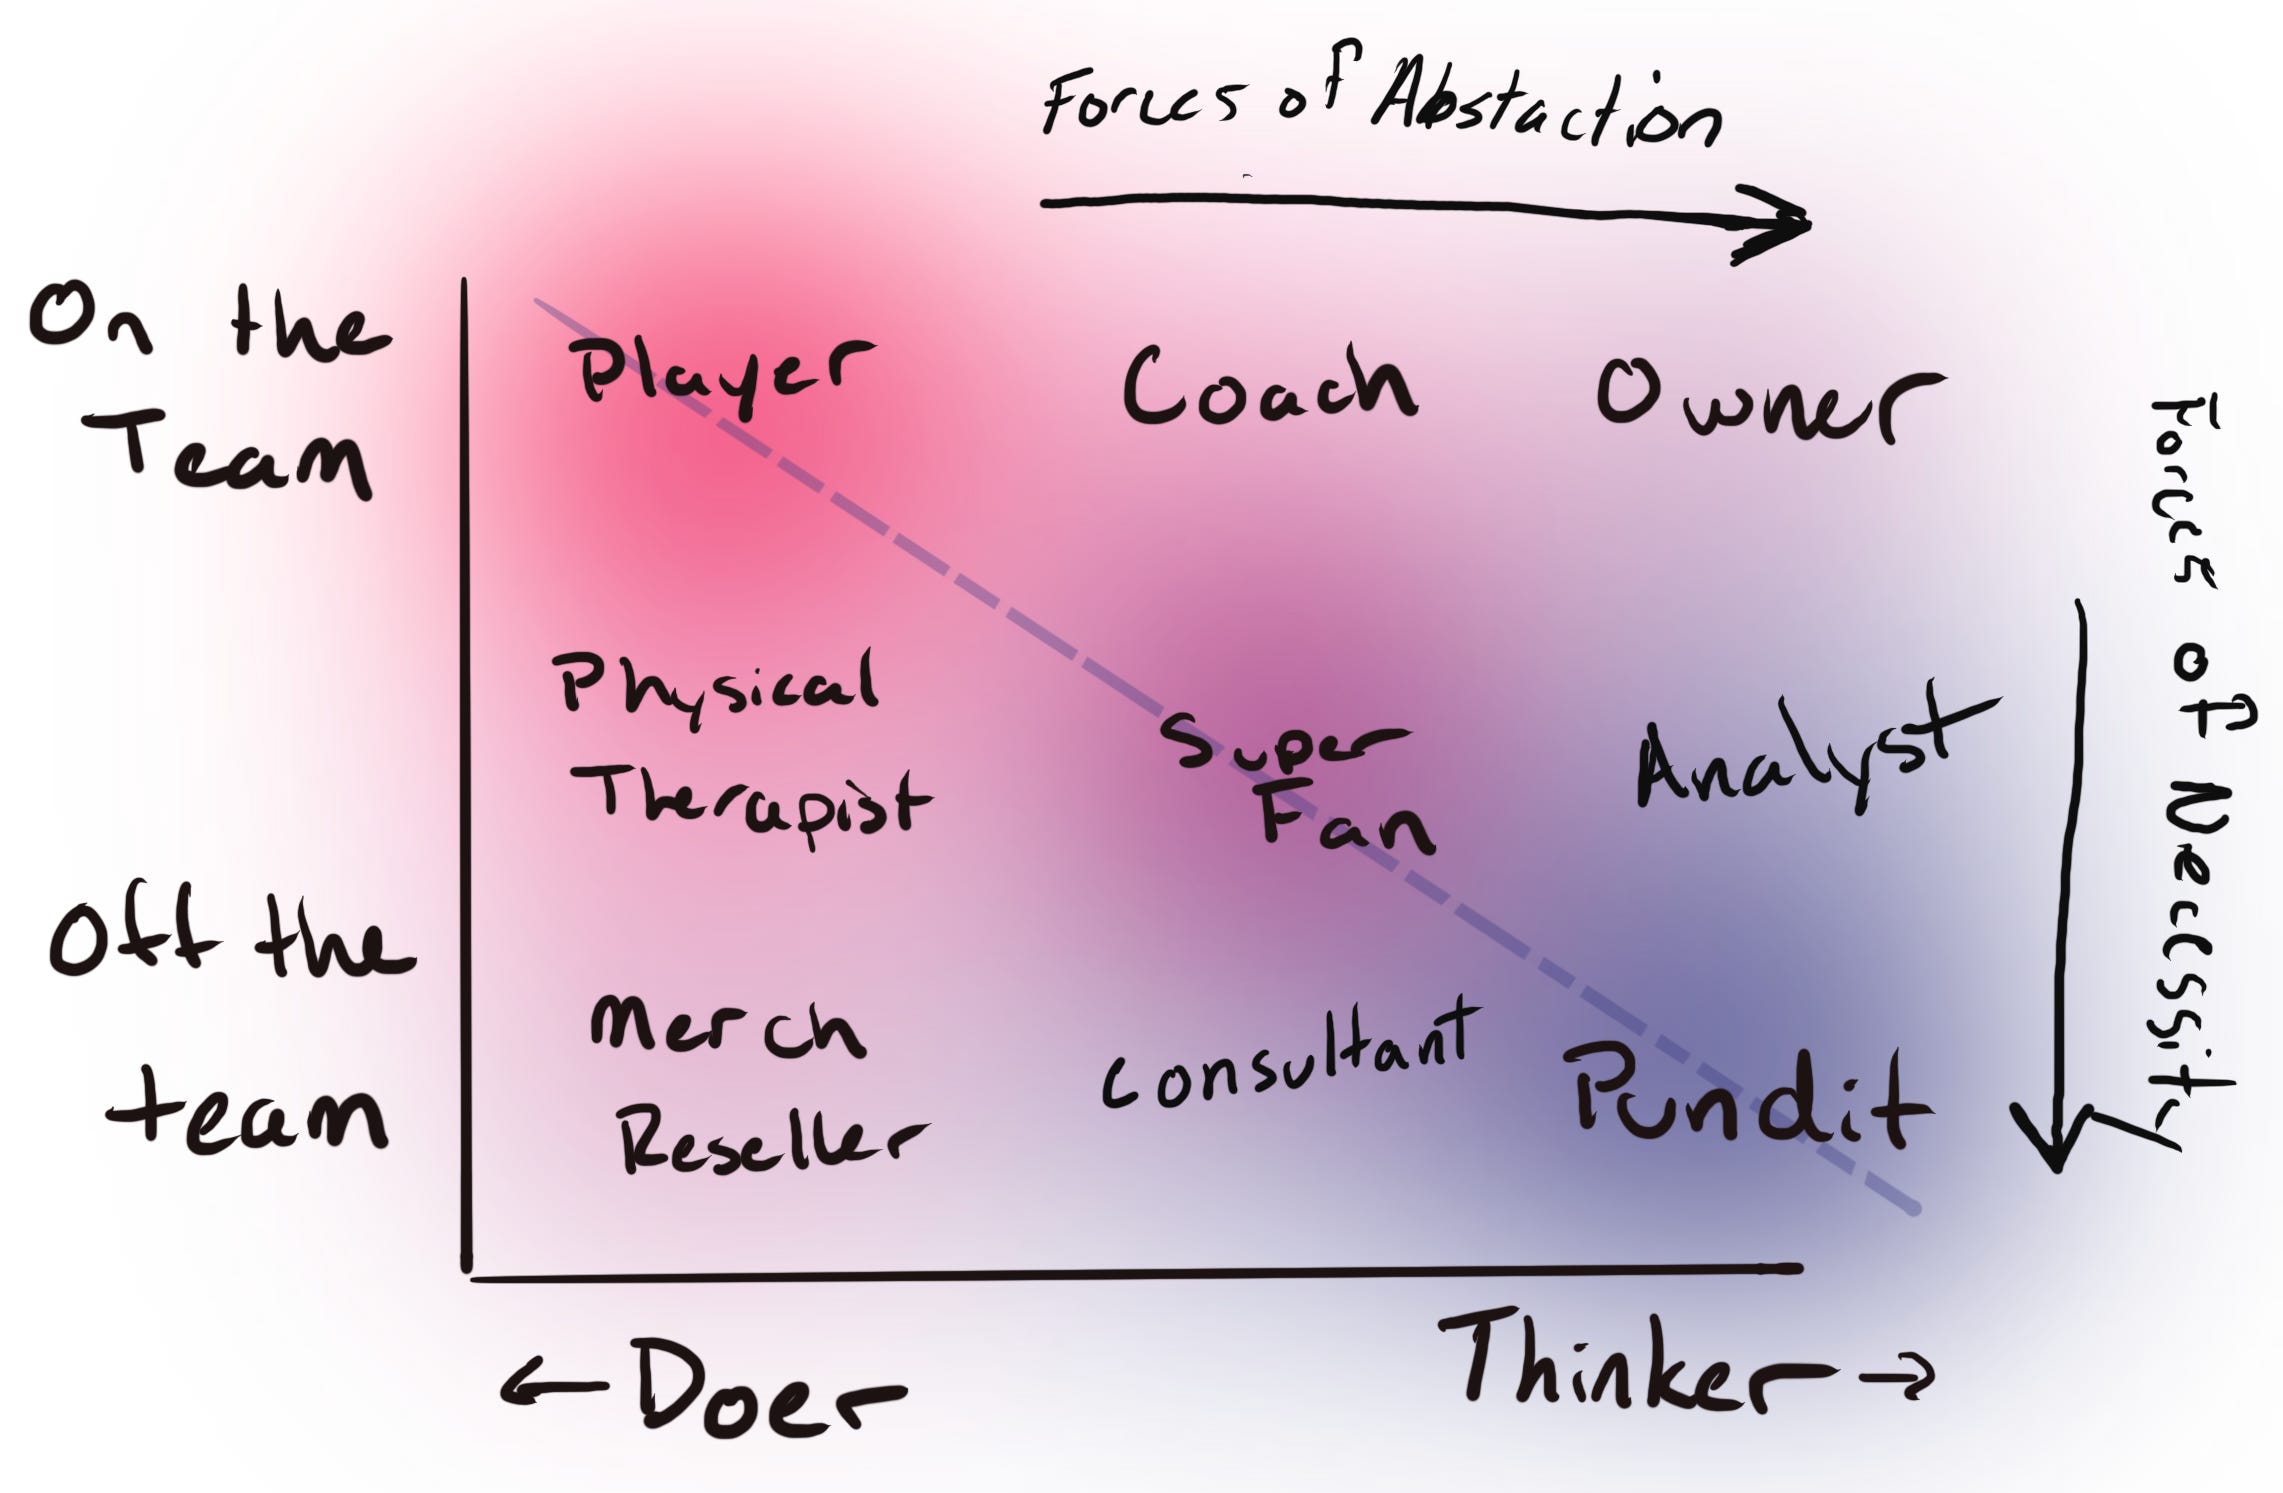 Forces of Abstaction
On the
Team
Player
Coach
Owner
Forces of Necessity
Physical
Therapist
Super
Fan
Analyst
Off the
team
Merch
Reseller
Consultant
Pundit
← Doer
Thinker →